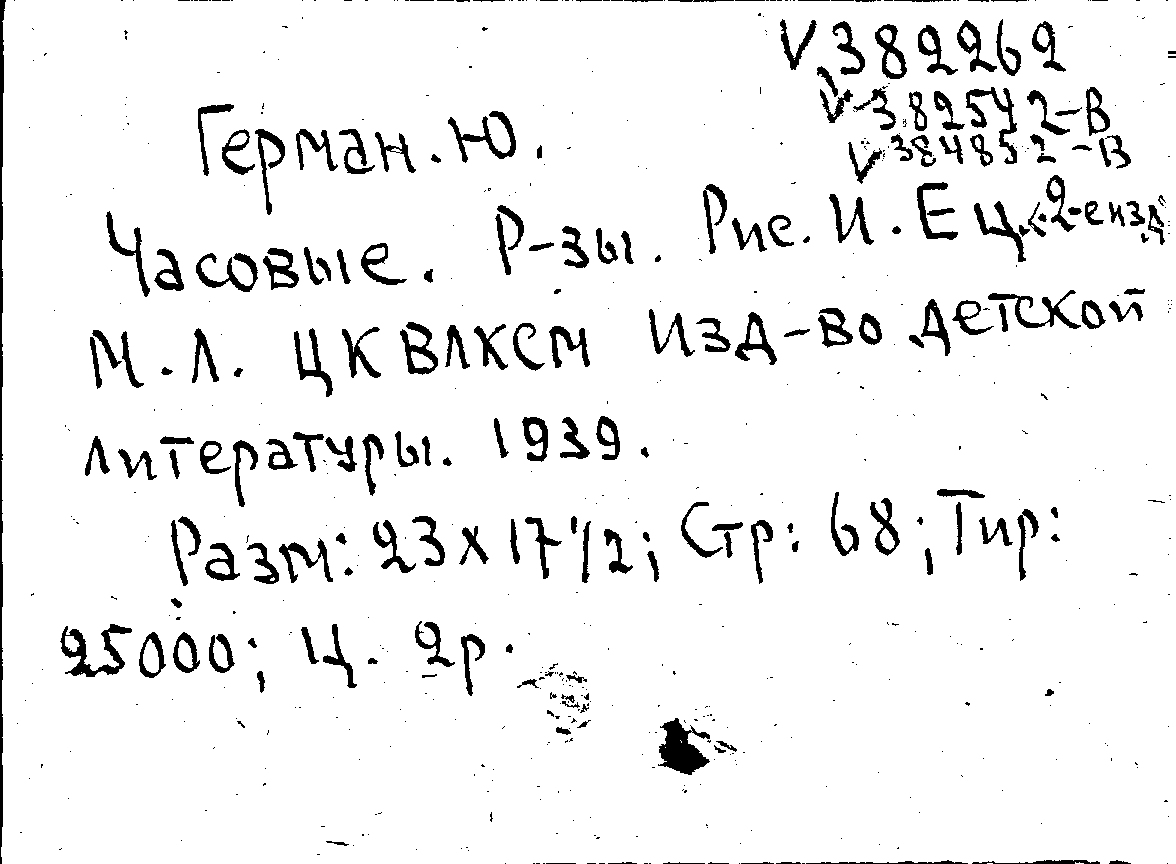 V 382262
V-382542-В
V 384852-В
Герман. Ю.
Часовые. Р-зы. Рис. И. Ец. 2-е изд
М.Л. ЦК ВЛКСМ Изд-во детской
литературы. 1939.
Разм: 23х17 1/2; Стр: 68; Тир:
25000; Ц. 2р.